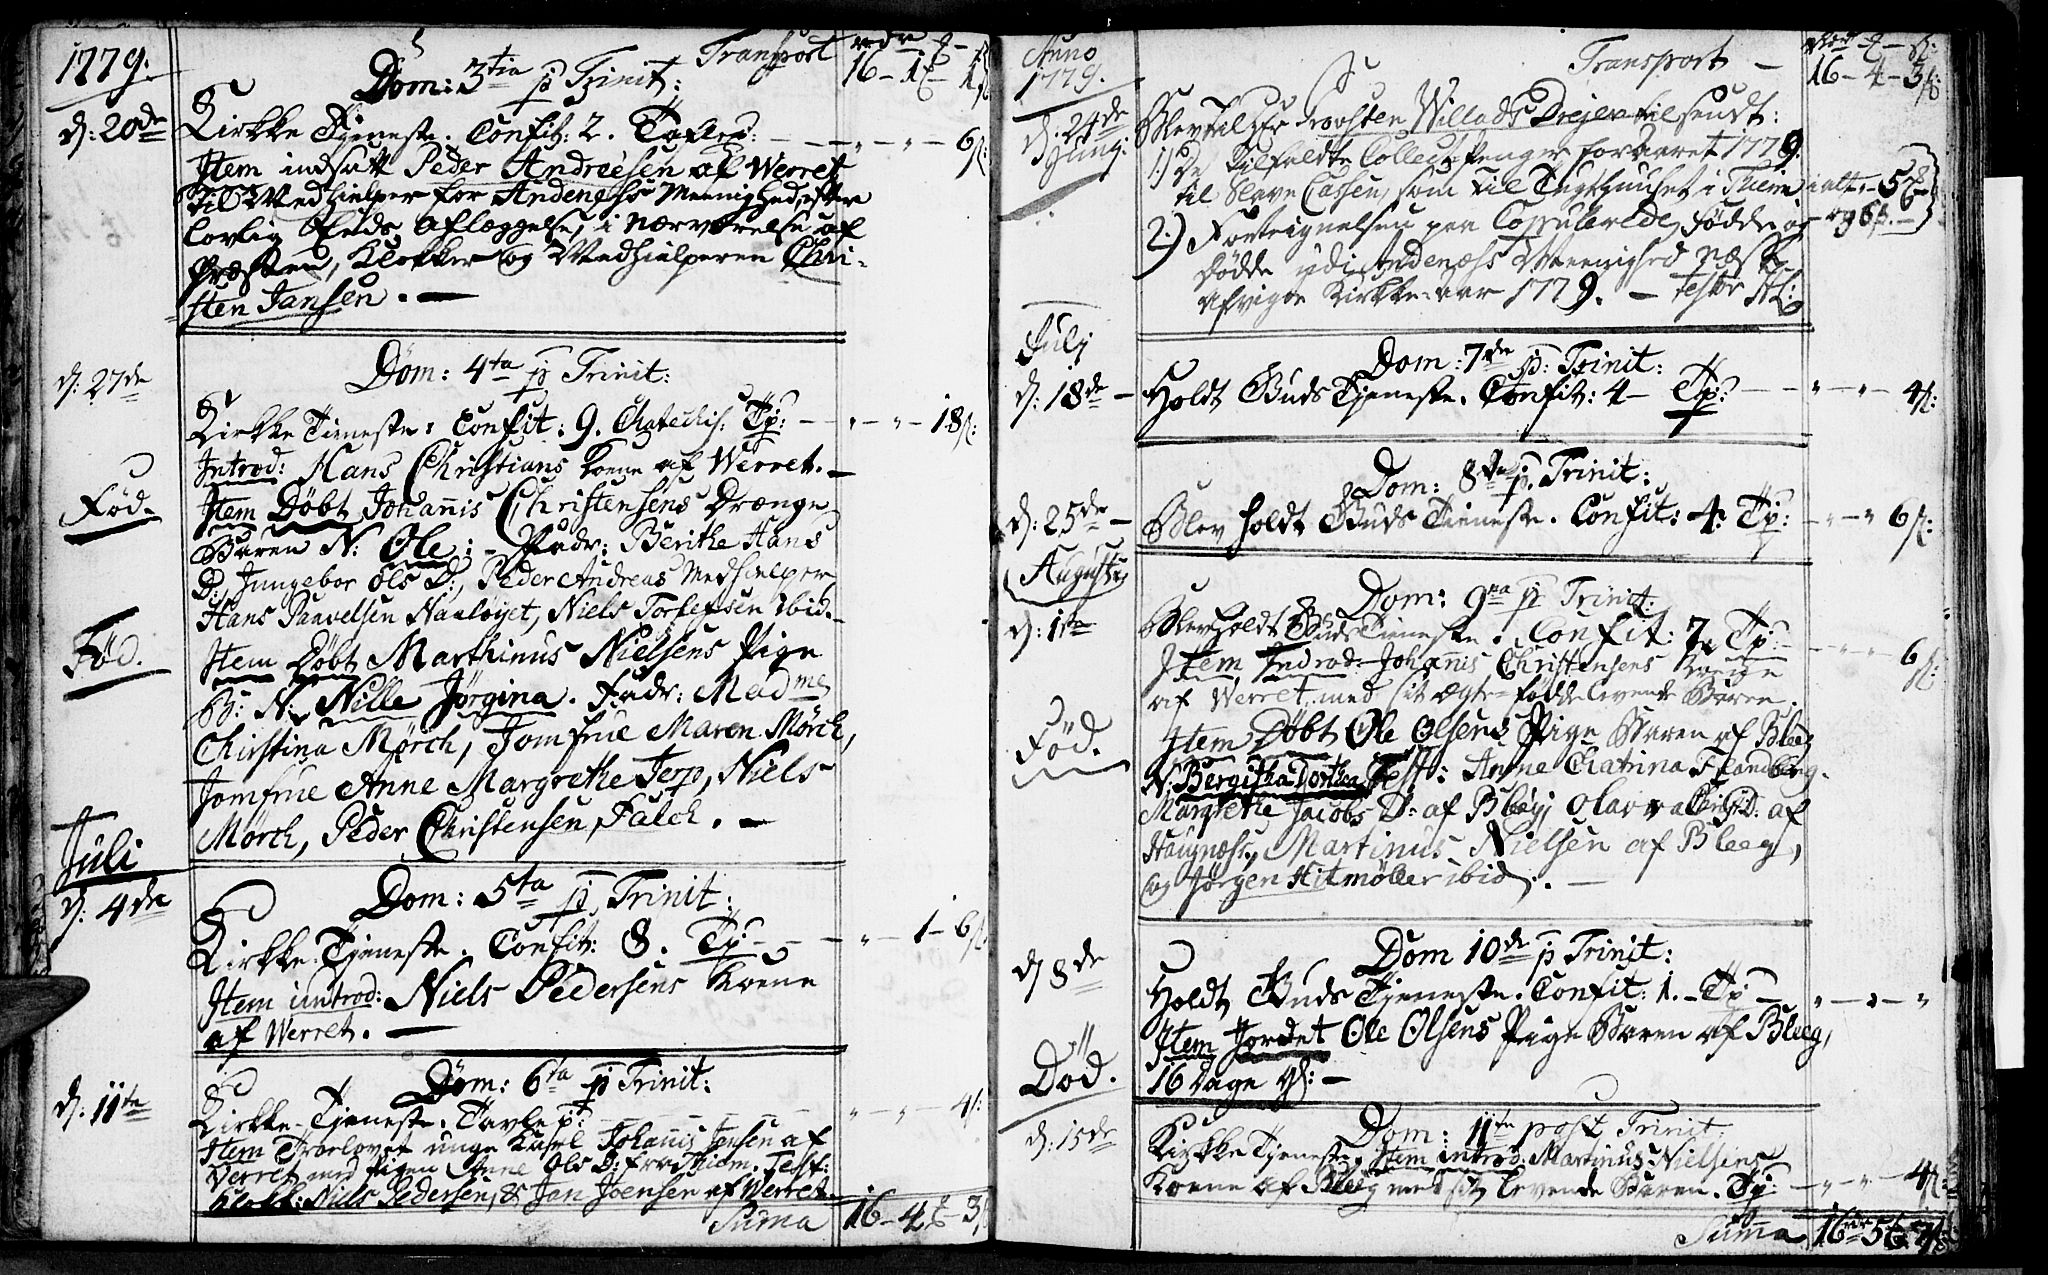 1779.
Transport rdr ℔ ß
16 - 1 - 1
Dom: 3tia p Trinit:
d: 20de
Kirkke Tjeneste. Confit: 2. Taflep: - - - 6ß:
Item indsatt Peder Andreesen af Werret
til Medhielper for Andenæss Meenighed, efter
lovlig Eeds aflæggelse, i nærværelse af
Præsten, Klokker og Medhielperen Chri-
sten Jansen. -
Dom: 4ta p Trinit:
d: 27de
Kirkke Tieneste: Confit: 9. Chatechis: Tp: - - - 18ß:
Introd: Hans Christians Kone af Werret. -
Fød.
Item Døbt Johanis Christensens Drænge-
Baren N: Ole: - Fadr: Berithe Hans
D: Jungebor Ols D:, Peder Andreas Medhielper
Hans Paavelsen Naaløyet, Niels Torfensen ibid. -
Fød.
Item Døbt Marthinus Nielsens Pige
B: N: Nille Jørgina. Fadr: Madme
Christina Mørch, Jomfrue Maren Mørch,
Jomfrue Anne Margrethe Jerp, Niels
Mørch, Peder Christensen Falch. -
Juli
d: 4de
Dom: 5ta p Trinit:
Kirkke-Tjeneste. Confit: 8. Tp: - - - 1 - 6ß:
Item introd: Niels Pedersens Kone
af Werret. -
Dom: 6ta p Trinit:
d: 11te
Kirkke-Tjeneste. Tavle p: - - - 4ß:
Item Trolovet unge Karl Johanis Jensen af
Verret med Pigen Anne Ols D: fra Thiem. Test:
Klokk: Niels Pedersen, & Jan Joensen af Werret.
Suma 16 - 4 - 3ß
Anno
1779.
Transport - 16 - 4 - 3ß:
d: 24de
Junj:
Blev til Hr Provsten Willads Drejer til sendt:
1.) De tilfaldte Collect Penger for aaret 1779.
til Slave Cassen, som til Tugthuuset i Thiem i alt - 5
og 6ß. -
2.) Forteignelsen paa Copulerede, Fødde og
Dødde udi Andenæss Meenighed næst
afvigte Kirkke-aar 1779. - testor
Julj
Dom: 7de p: Trinit:
d: 18de - Holdt Guds Tjeneste. Confit: 4 - Tp: - - - 4ß:
Dom: 8de p. Trinit:
d: 25de - Blev holdt Guds Tieneste. Confit: 4: Tp: - - - 6ß:
Augusty
Dom: 9na p Trinit:
d: 1ste
Blev holdt Guds Tieneste. Confit: 7. Tp: - - - 6ß:
Item Indrod: Johanis Christensens Konge
af Werret, med sit ægte-fødde levende Baren.
Fød.
Item Døbt Ole Olsens Pige Baren af Bleeg
N: Bergitha Dorthea Test: Anne Chatrina Flandborg.
Margrethe Jacobs D: af Bleeg, Olava D: af
Haugnæss, Martinus Nielsen af Bleeg,
og Jørgen Hitmøller ibid:. -
Dom 10de p Trinit:
d 8de
Holdt Guds Tjeneste. Confit: 1. - Tp: - - 2 -
Død.
Item Jordet Ole Olsens Pige Baren af Bleeg,
16 Dage gl: -
Dom: 11te post Trinit:
d: 15de
Kirkke Tjeneste. Item introd: Martinus Nielsens
Kone af Bleeg med sit levende Baren. Tp: - - - 4ß:
Suma 16 rdr 5 7ß